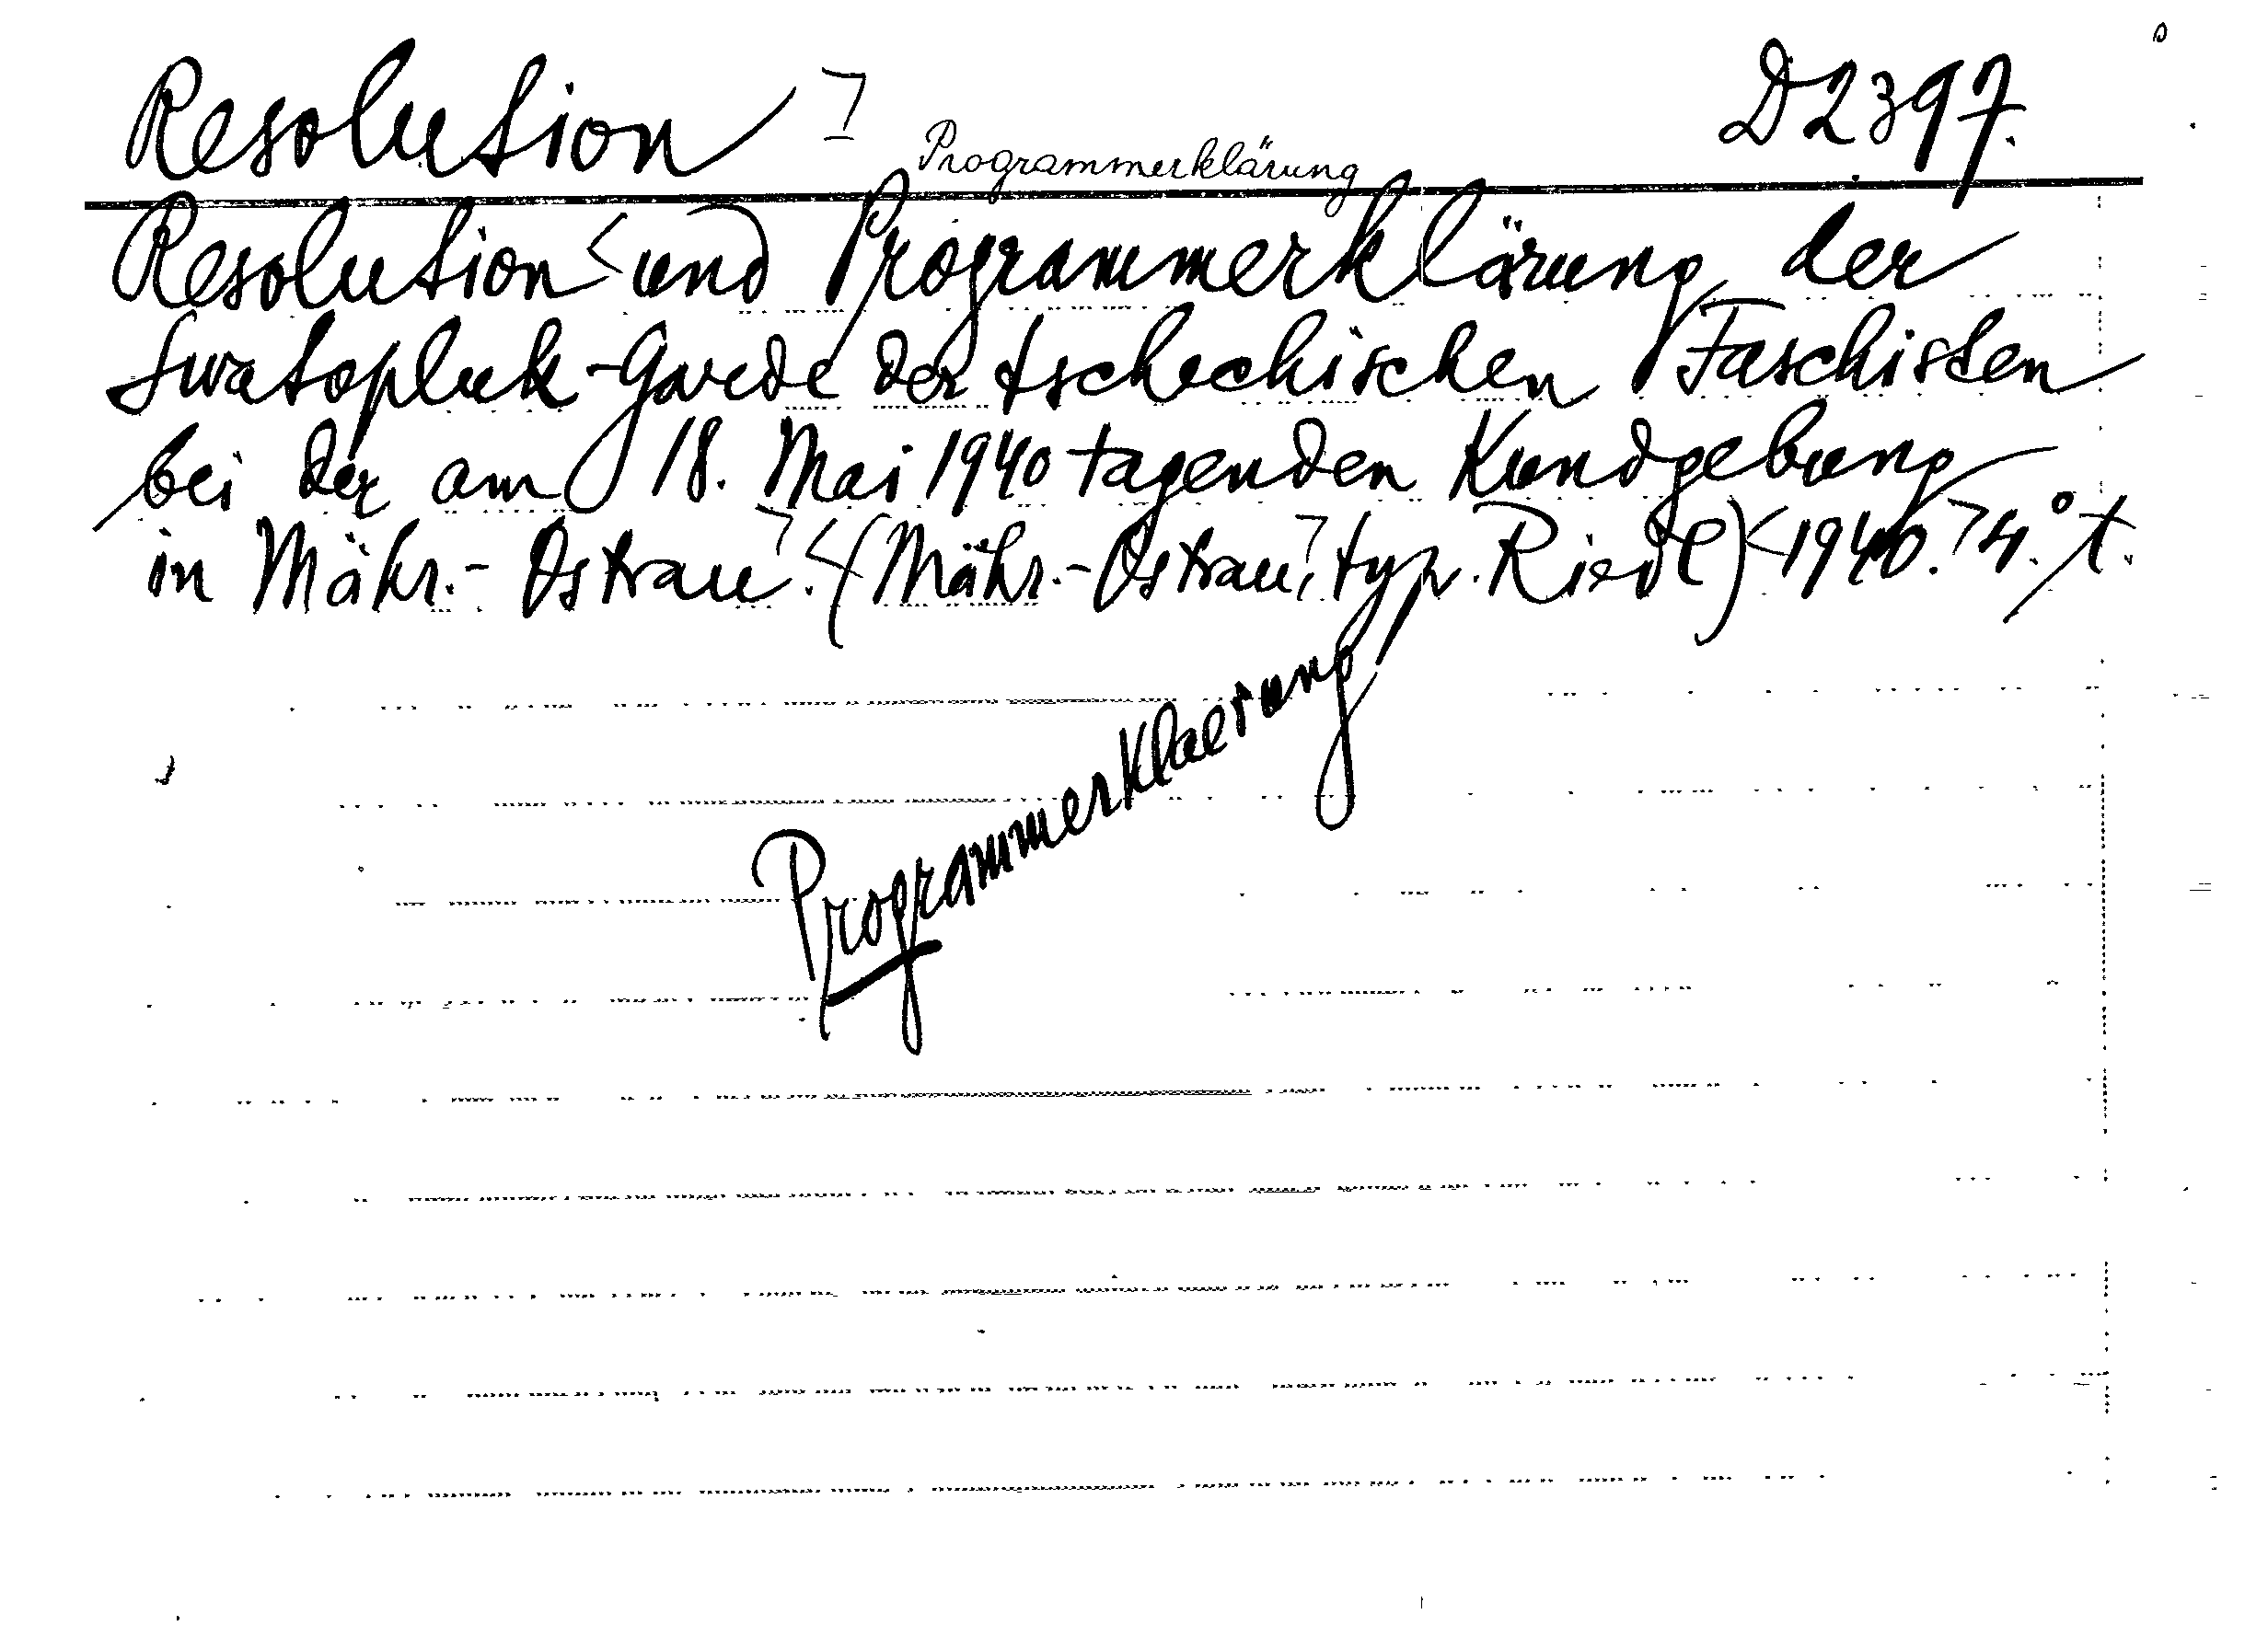 Resolution
Programmerklärung
D2397.
Resolution und Programmerklärung der
Swatopluk-Garde der tschechischen Faschisten
bei der am 18. Mai 1940 tagenden Kundgebung
in Mähr.-Ostrau. (Mähr.-Ostrau, typ. Riedl) 1940. 4.° 1.
Programmerklaerung